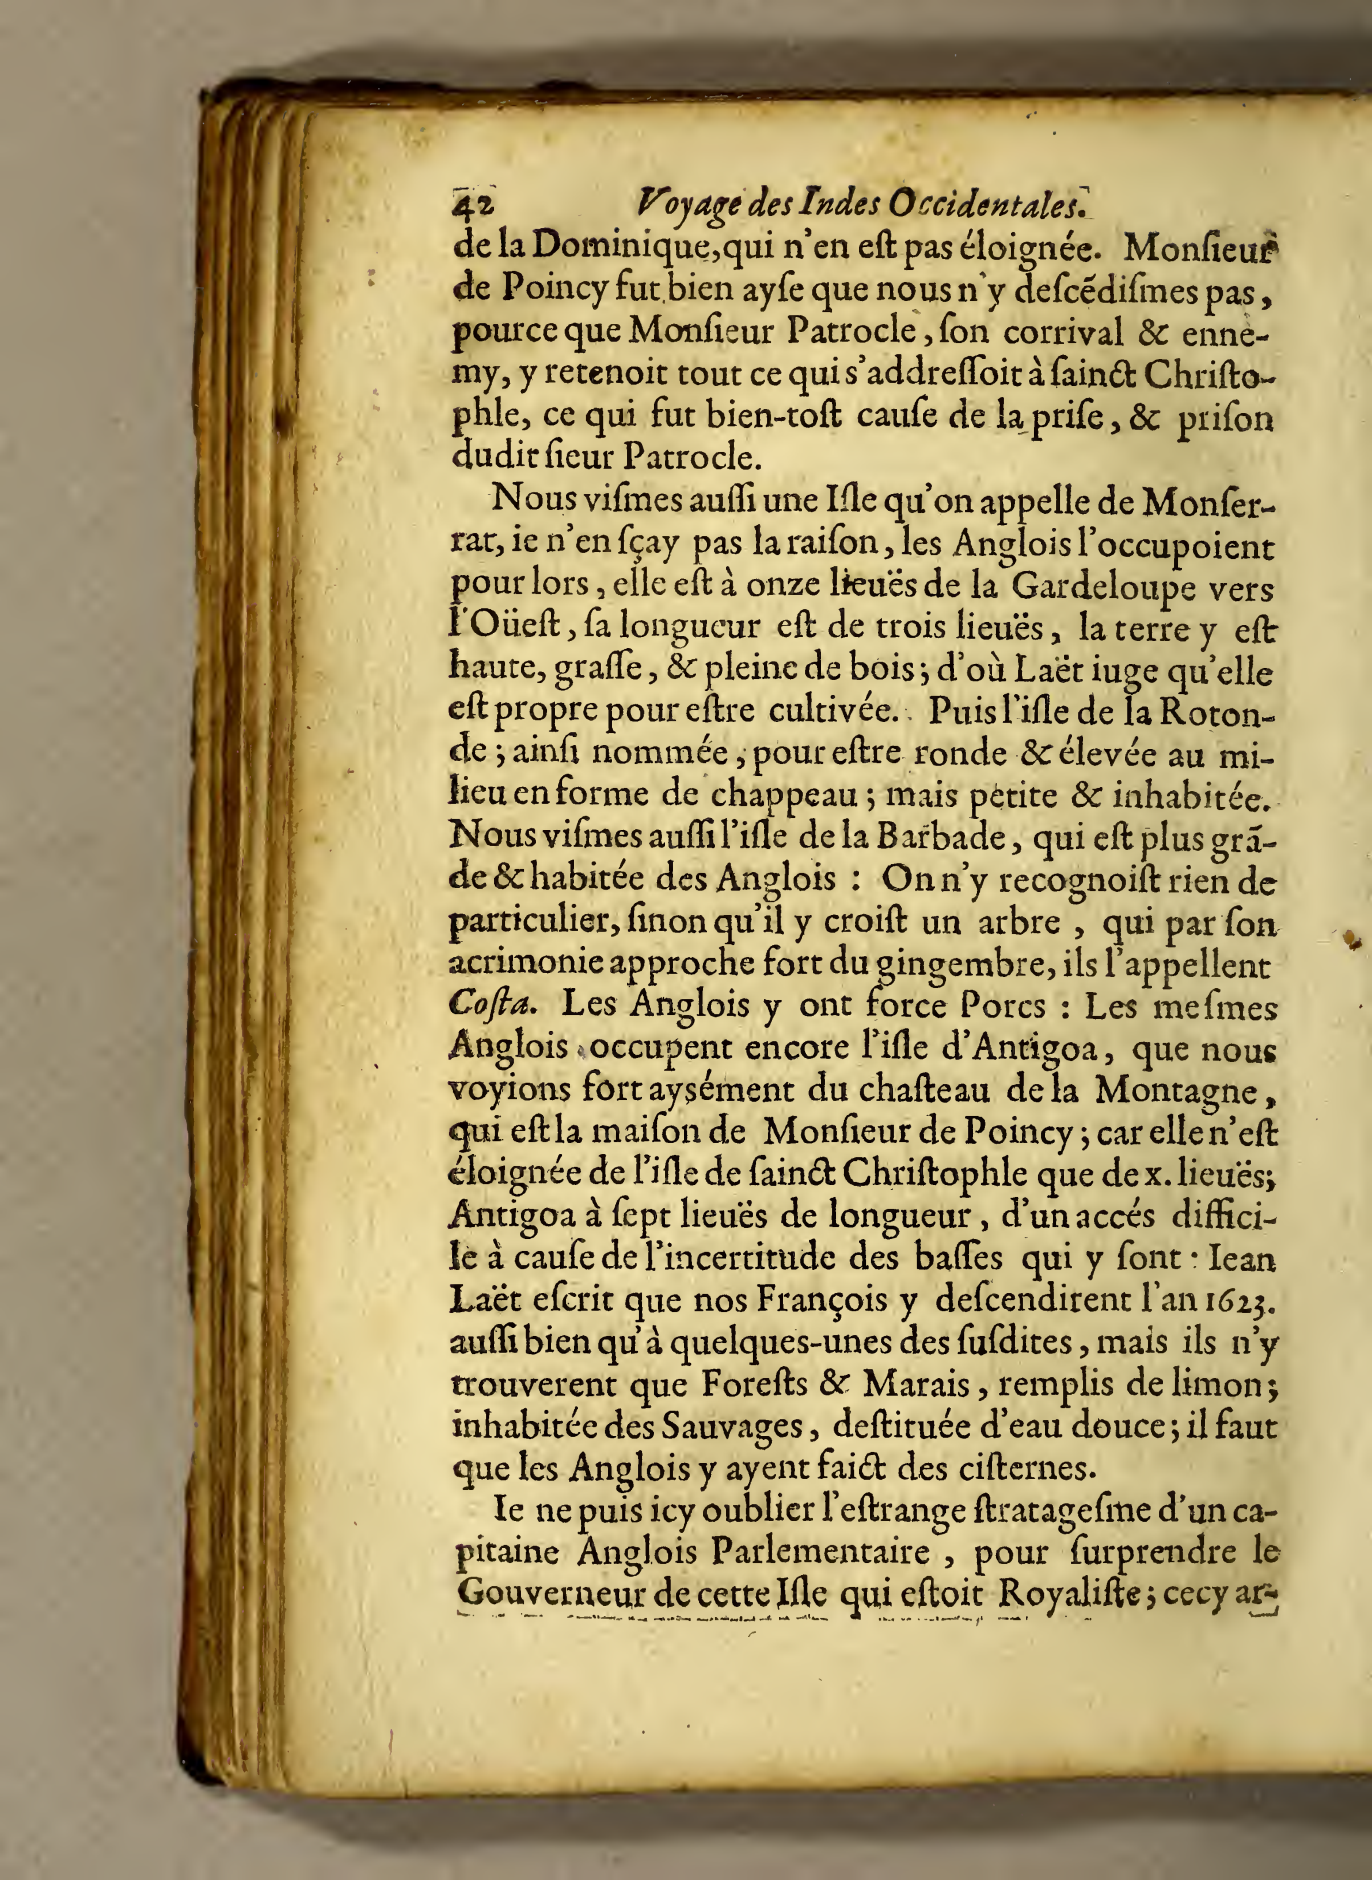 42 Voyage des Indes Occidentales.
de la Dominique, qui n'en eſt pas éloignée. Monſieur
de Poincy fut bien ayſe que nous n'y deſcẽdiſmes pas,
pource que Monſieur Patrocle, ſon corrival & enne-
my, y retenoit tout ce qui s'addreſſoit à ſainct Chriſto-
phle, ce qui fut bien-toſt cauſe de la priſe, & priſon
dudit ſieur Patrocle.
Nous viſmes auſſi une Iſle qu'on appelle de Monſer-
rat, ie n'en ſçay pas la raiſon, les Anglois l'occupoient
pour lors, elle eſt à onze lieuës de la Gardeloupe vers
l'Oüeſt, ſa longueur eſt de trois lieuës, la terre y eſt
haute, graſſe, & pleine de bois; d'où Laët iuge qu'elle
eſt propre pour eſtre cultivée. Puis l'iſle de la Roton-
de; ainſi nommée, pour eſtre ronde & élevée au mi-
lieu en forme de chappeau; mais petite & inhabitée.
Nous viſmes auſſi l'iſle de la Barbade, qui eſt plus grã-
de & habitée des Anglois : On n'y recognoiſt rien de
particulier, ſinon qu'il y croiſt un arbre, qui par ſon
acrimonie approche fort du gingembre, ils l'appellent
Coſta. Les Anglois y ont force Porcs : Les meſmes
Anglois occupent encore l'iſle d'Antigoa, que nous
voyions fort aysément du chaſteau de la Montagne,
qui eſt la maiſon de Monſieur de Poincy; car elle n'eſt
éloignée de l'iſle de ſainct Chriſtophle que de x. lieuës;
Antigoa à ſept lieuës de longueur, d'un accés diffici-
le à cauſe de l'incertitude des baſſes qui y ſont : Iean
Laët eſcrit que nos François y deſcendirent l'an 1623.
auſſi bien qu'à quelques-unes des ſuſdites, mais ils n'y
trouverent que Foreſts & Marais, remplis de limon;
inhabitée des Sauvages, deſtituée d'eau douce; il faut
que les Anglois y ayent faict des ciſternes.
Ie ne puis icy oublier l'eſtrange ſtratageſme d'un ca-
pitaine Anglois Parlementaire, pour ſurprendre le
Gouverneur de cette Iſle qui eſtoit Royaliſte; cecy ar-